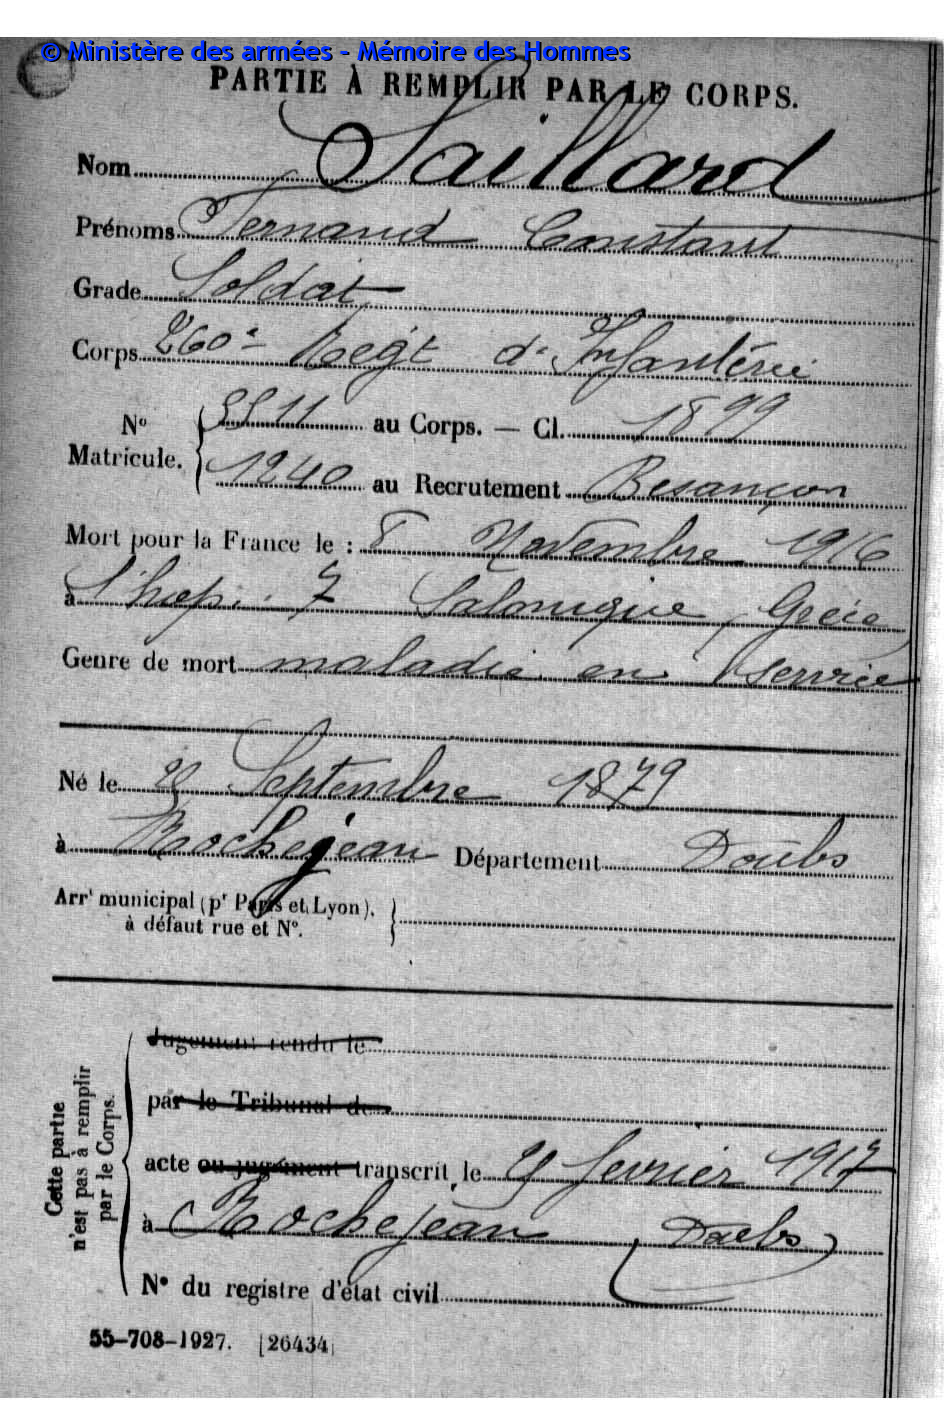 © Ministère des armées - Mémoire des Hommes
PARTIE À REMPLIR PAR LE CORPS.
Nom Saillard
Prénoms Fernand Constant
Grade Soldat
Corps 260e Régt d'Infanterie
No Matricule. { 5511 au Corps. — Cl. 1899
1240 au Recrutement Besançon
Mort pour la France le : 8 Novembre 1916
à l'hop. 7 Salonique, Grèce
Genre de mort maladie en service
Né le Septembre 1879
à Rochejean Département Doubs
Arrt municipal (pr Paris et Lyon),
à défaut rue et No.
Jugement rendu le
par le Tribunal de
acte ou jugement transcrit le février 1917
à Rochejean (Doubs)
No du registre d'état civil
Cette partie
n'est pas à remplir
par le Corps.
55-708-1927. [26434]